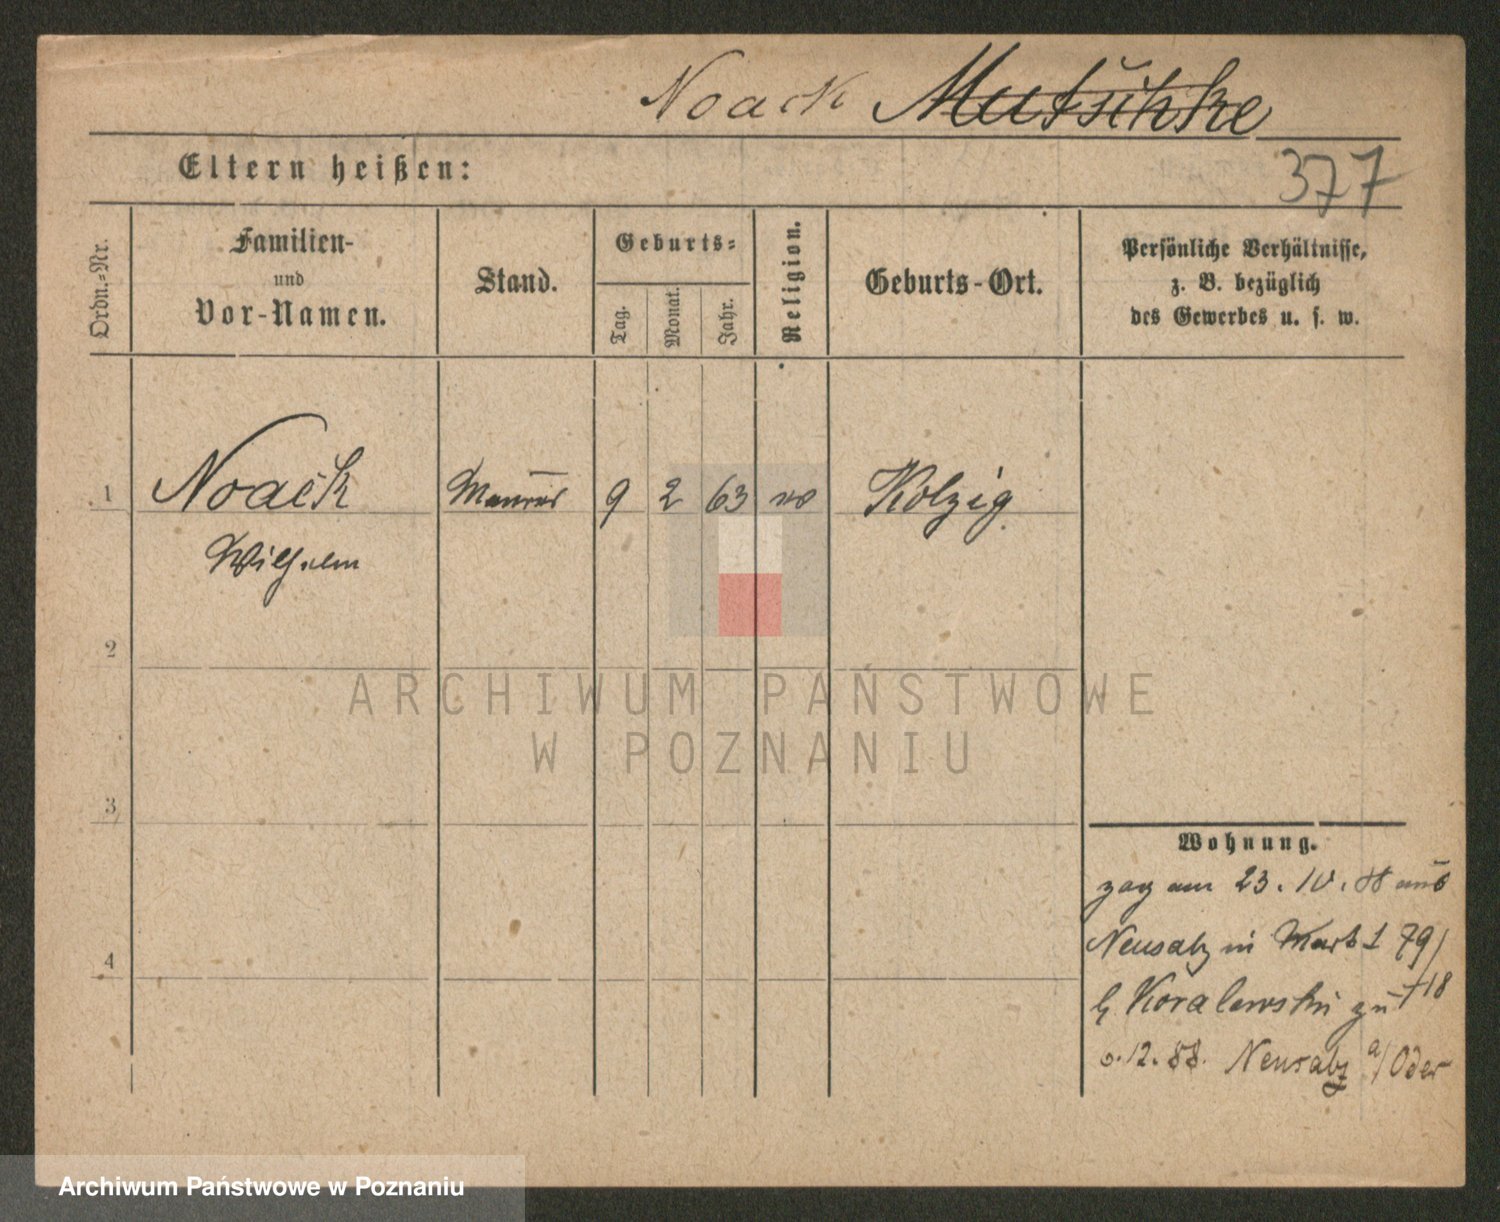 Noack Mutschke
Eltern heißen:
377
Ordn.=Nr.
Familien-
und
Vor-Namen.
Stand.
Geburts=
Tag.
Monat.
Jahr.
Religion.
Geburts-Ort.
Persönliche Verhältnisse,
z. B. bezüglich
des Gewerbes u. s. w.
1 Noack Maurer 9 2 63 Kolzig
Wilhelm
2
3
4
Wohnung.
zog am 23. 10. 88 aus
Neusalz in 79/
Koralewski
12. 88. Neusalz a/Oder
ARCHIWUM PAŃSTWOWE
W POZNANIU
Archiwum Państwowe w Poznaniu